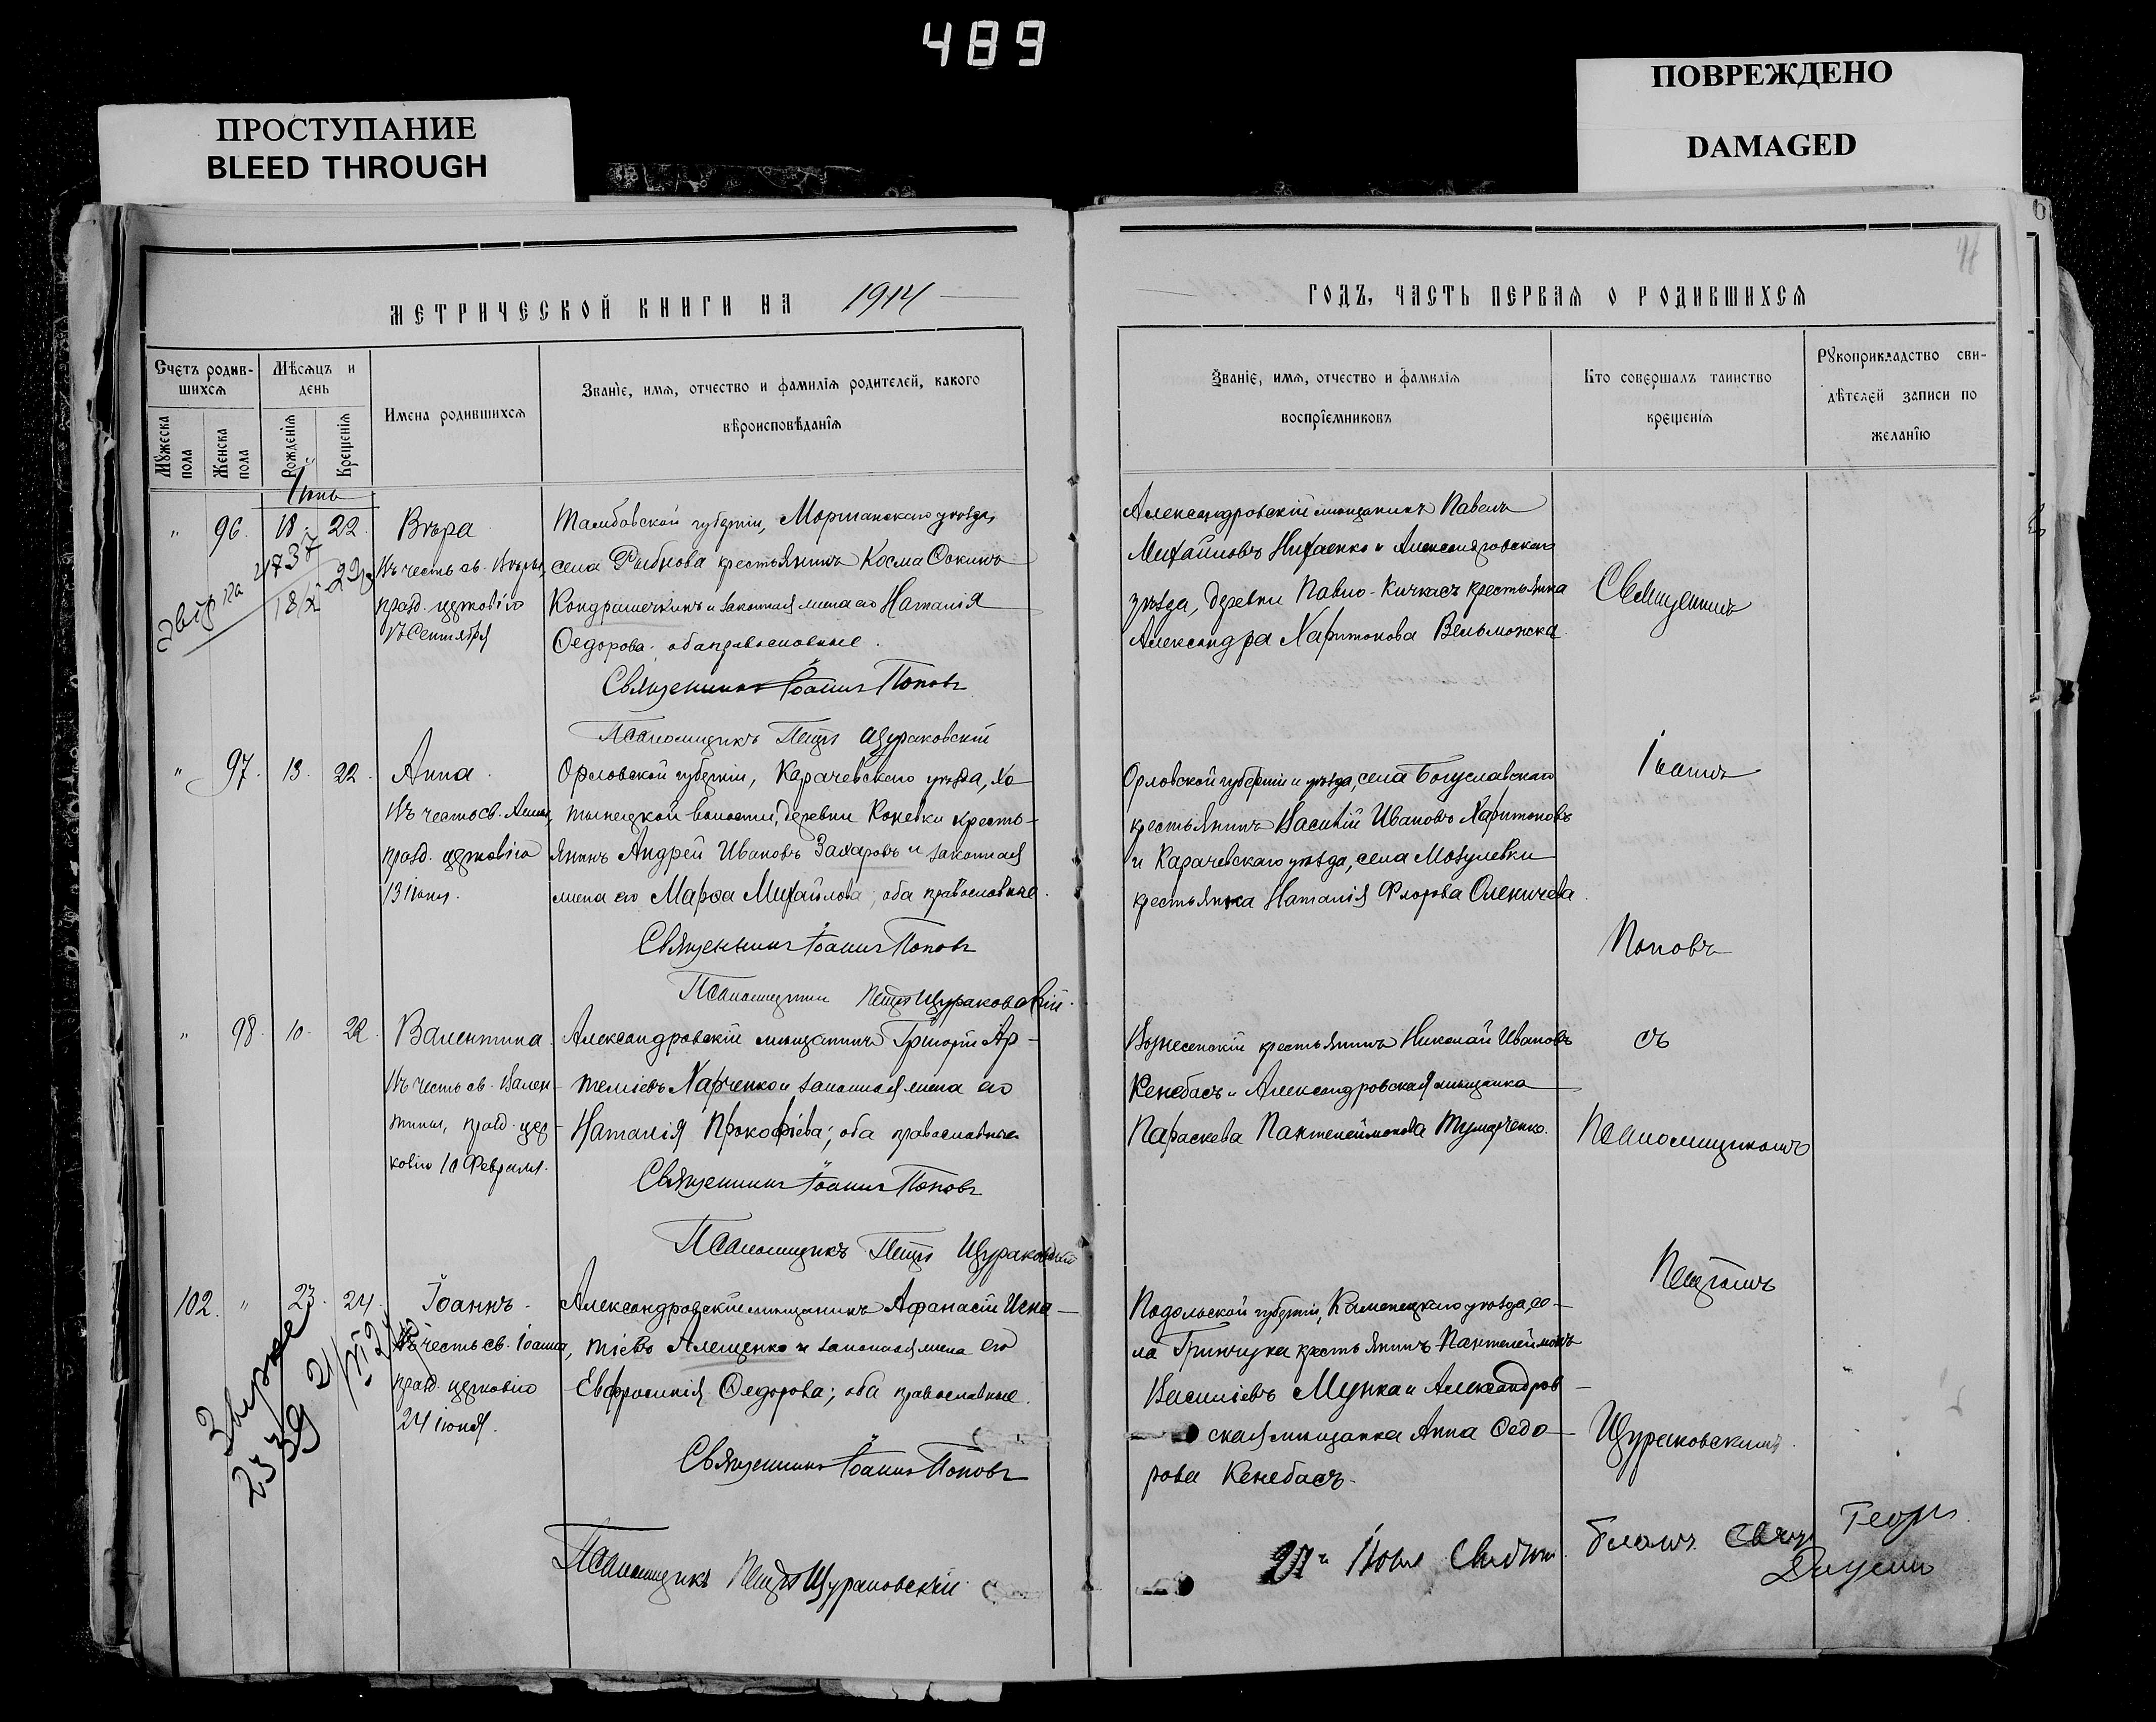 489
ПРОСТУПАНИЕ
BLEED THROUGH
ПОВРЕЖДЕНО
DAMAGED
МЕТРИЧЕСКОЙ КНИГИ НА 1914
Счетъ родив-
шихся
Мужеска пола
Женска пола
Мѣсяцъ и
день
Рожденія
Крещенія
Имена родившихся
Званіе, имя, отчество и фамилія родителей, какого
вѣроисповѣданія
Іюнь
" 96. 18. 22. Вѣра
Въ честь св. Вѣры,
празд. церковію
Сентября
Тамбовской губерніи, Моршанскаго уѣзда,
села Рыбнова крестьянинъ Косма Ѳокинъ
Кондрашечкинъ и законная жена его Наталія
Ѳедорова; оба православные.
Священникъ Іоаннъ Поповъ
Псаломщикъ Петръ Щураковскій
4737
" 97. 13. 22. Анна.
Въ честь св. Анны,
празд. церковію
13 Іюня.
Орловской губерніи, Карачевскаго уѣзда, Хо-
тынецкой волости, деревни Коневки кресть-
янинъ Андрей Ивановъ Захаровъ и законная
жена его Марѳа Михайлова; оба православные.
Священникъ Іоаннъ Поповъ
Псаломщикъ Петръ Щураковскій.
" 98. 10. 22. Валентина.
Въ честь св. Вален-
тины, празд. цер-
ковію 10 Февраля.
Александровскій мѣщанинъ Григорій Ар-
теміевъ Харченко и законная жена его
Наталія Прокофіева; оба православные
Священникъ Іоаннъ Поповъ
Псаломщикъ Петръ Щураковскій
102. " 23. 24. Іоаннъ.
Въ честь св. Іоанна,
празд. церковію
24 іюня.
Александровскій мѣщанинъ Аѳанасій Игна-
тіевъ Алещенко и законная жена его
Евфросинія Ѳедорова; оба православные.
Священникъ Іоаннъ Поповъ
Псаломщикъ Петръ Щураковскій.
2339
ГОДЪ, ЧАСТЬ ПЕРВАЯ О РОДИВШИХСЯ
Званіе, имя, отчество и фамилія
воспріемниковъ
Кто совершалъ таинство
крещенія
Рукоприкладство сви-
дѣтелей записи по
желанію
Александровскій мѣщанинъ Павелъ
Михайловъ Нихаенко и Александровскаго
уѣзда, деревни Павло-Кичкасъ крестьянка
Александра Харитонова Вельможска
Орловской губерніи и уѣзда, села Богуславскаго
крестьянинъ Василій Ивановъ Харитоновъ
и Карачевскаго уѣзда, села Мозулевки
крестьянка Наталія Флорова Оленичева.
Вознесенскій крестьянинъ Николай Ивановъ
Кенебасъ и Александровская мѣщанка
Параскева Пантелеймонова Тумарченко.
Подольской губерніи, Каменецкаго уѣзда, се-
ла Гринчука крестьянинъ Пантелеймонъ
Василіевъ Мунка и Александров-
ская мѣщанка Анна Ѳедо-
рова Кенебасъ.
Священникъ
Іоаннъ
Поповъ
съ
Псаломщикомъ
Петромъ
Щураковскимъ.
Іюля
Георг